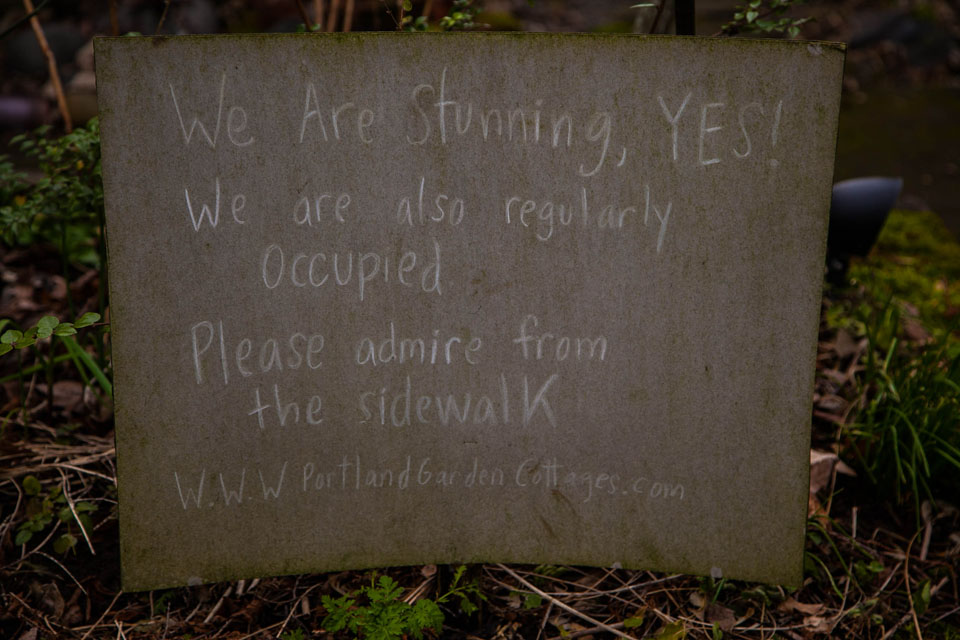 We Are Stunning, YES!
We are also regularly
Occupied.
Please admire from
the sidewalk
W.W.W PortlandGarden Cottages.com